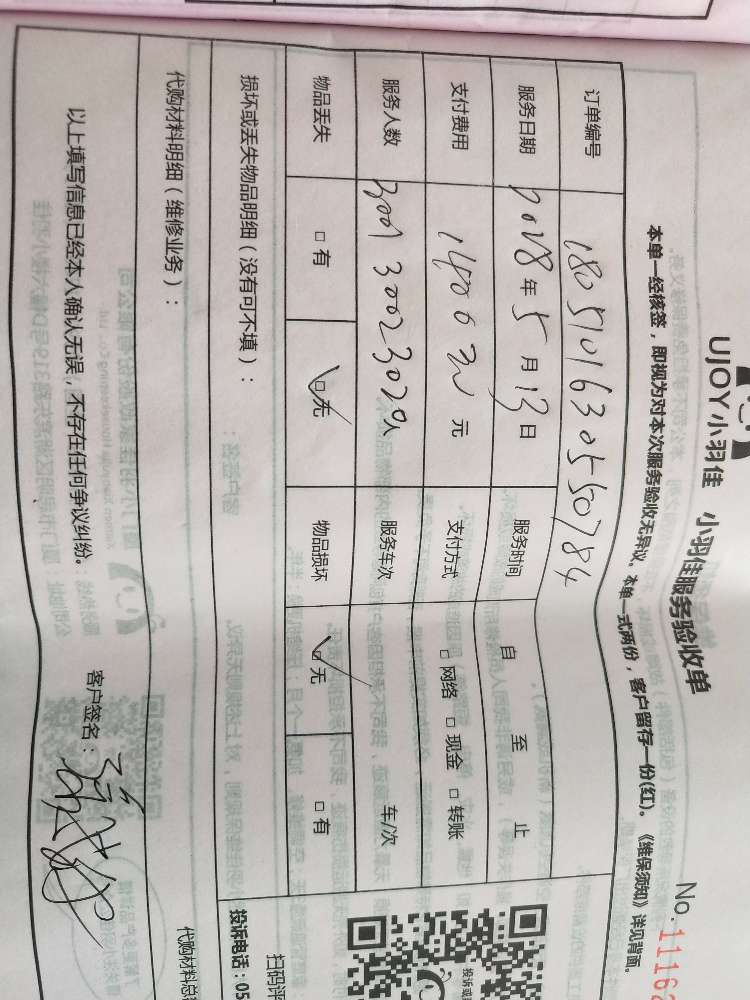 UJOY小羽佳 小羽佳服务验收单
No.11162
本单一经核签，即视为对本次服务验收无异议。本单一式两份，客户留存一份(红)。《维保须知》详见背面。
订单编号 1805101630550784
服务日期 2018年5月13日 服务时间 自 至 止
支付费用 1400元 元 支付方式 □网络 □现金 □转账
服务人数 3001 3002 3020人 服务车次 车/次
物品丢失 □有 ☑无 物品损坏 ☑无 □有
损坏或丢失物品明细（没有可不填）：
代购材料明细（维修业务）：
以上填写信息已经本人确认无误，不存在任何争议纠纷。 客户签名：
投诉或
扫码评
投诉电话：05
代购材料总